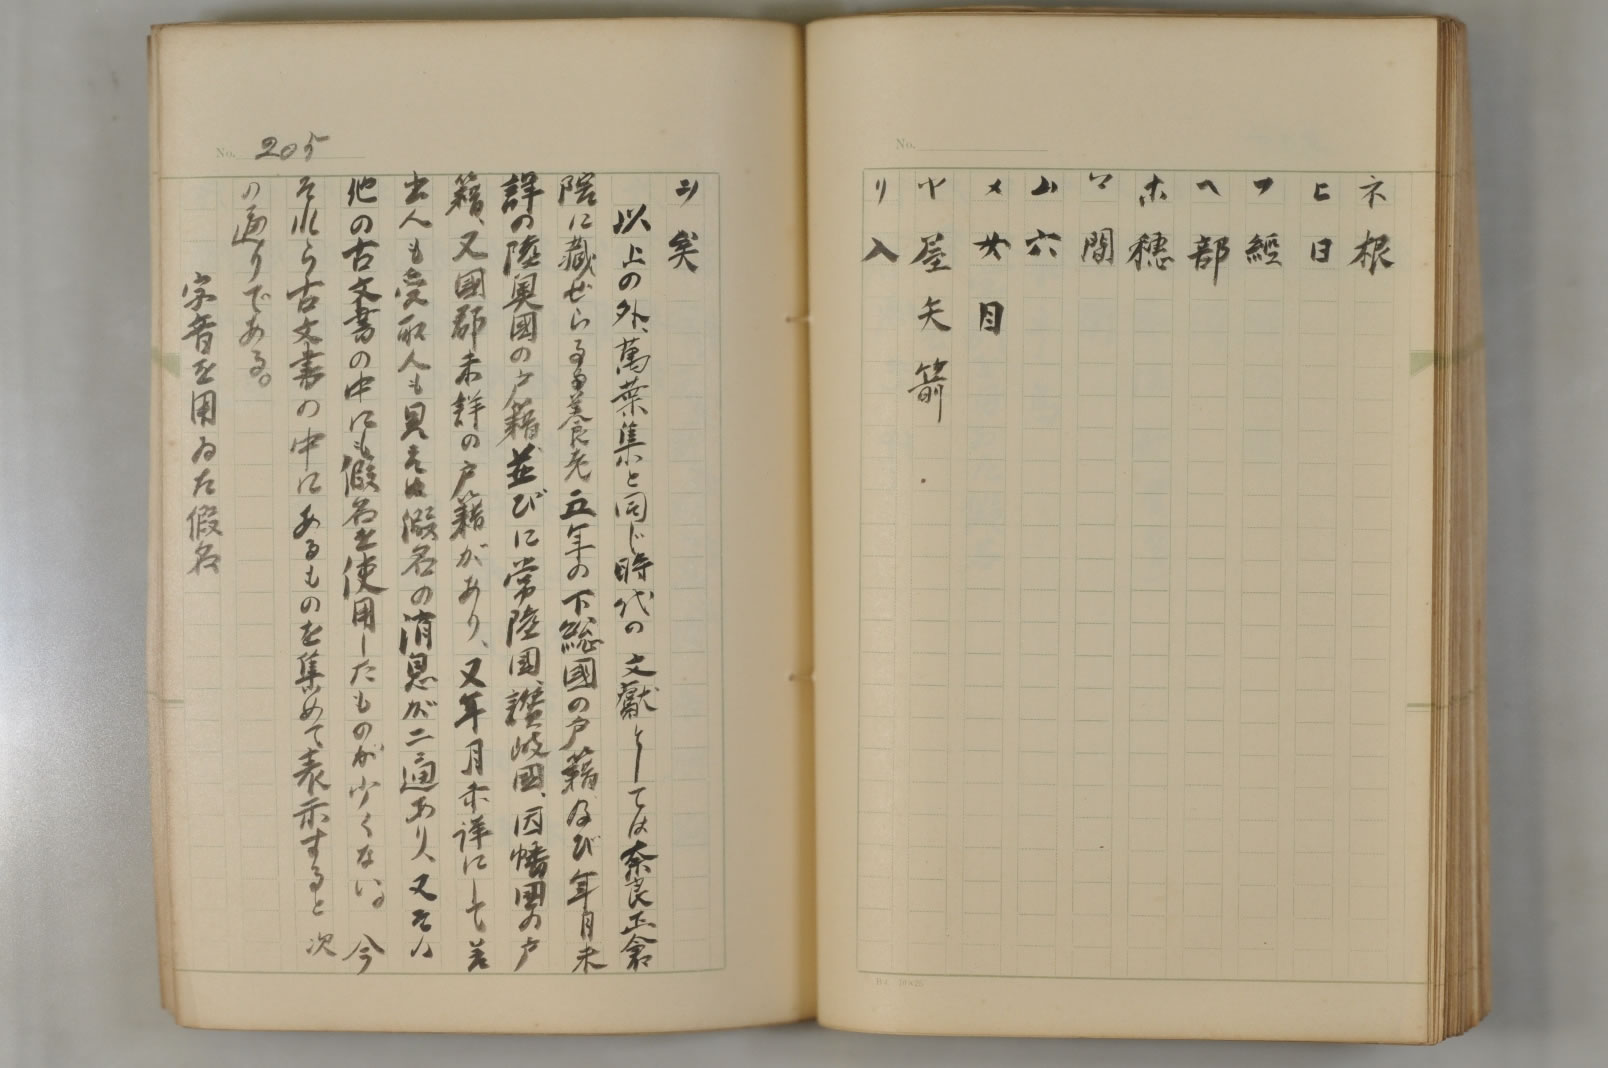 No.
ネ 根
ヒ 日
フ 經
ヘ 部
ホ 穗
マ 間
ム 六
メ 女 目
ヤ 屋 矢 箭
リ 入
No. 205
ヰ 矣
以上の外、萬葉集と同じ時代の文獻としては奈良正倉
院に藏せらるる養老五年の下総國の戸籍及び年月未
詳の陸奥國の戸籍並びに常陸國、讃岐國、因幡國の戸
籍、又國郡未詳の戸籍があり、又年月未詳にして差
出人も受取人も見えぬ假名の消息が二通あり、又その
他の古文書の中にも假名を使用したものが少くない。今
それら古文書の中にあるものを集めて表示すると次
の通りである。
字音を用ゐた假名